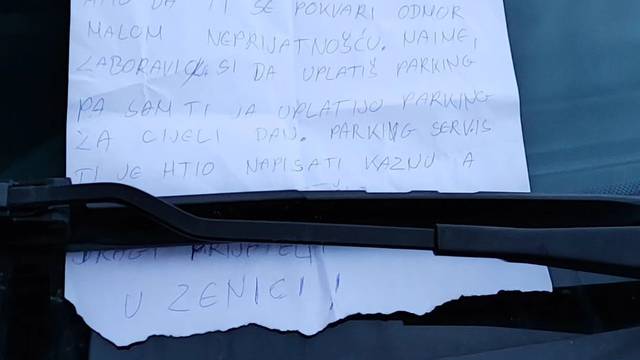 DA TI SE POKVARI ODMOR
MALOM NEPRIJATNOŠĆU. NAIME,
ZABORAVIO SI DA UPLATIŠ PARKING
PA SAM TI JA UPLATIJO PARKING
ZA CIJELI DAN. PARKING SERVIS
TI JE HTIO NAPISATI KAZNU A
DRAGI PRIJATELJ
U ZENICI!